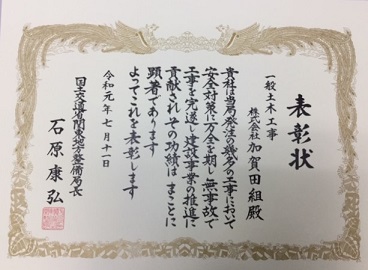 表彰状
一般土木工事
株式会社 加賀田組殿
貴社は当局発注の幾多の工事において
安全対策に万全を期し無事故で
工事を完遂し建設事業の推進に
貢献されその功績はまことに
顕著であります
よってこれを表彰します
令和元年七月十一日
国土交通省関東地方整備局長
石原康弘